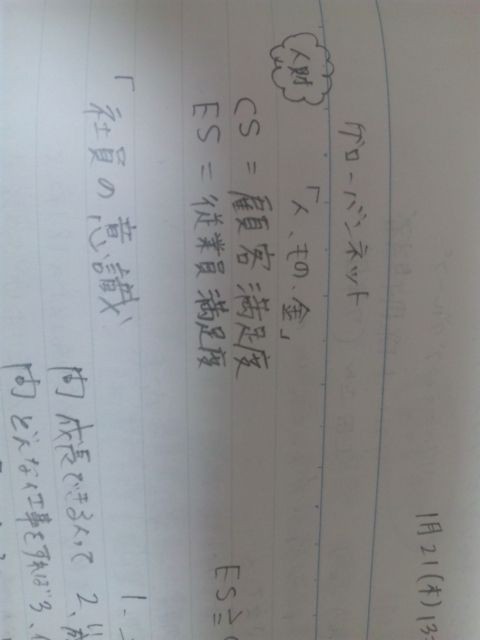 1月21(木)13
グローバンネット
人財 「人、もの、金」
CS = 顧客満足度
ES = 従業員満足度 ES≧
「社員の意識
1、
問 成長できる人って 2、
問 どんな仕事をすれば